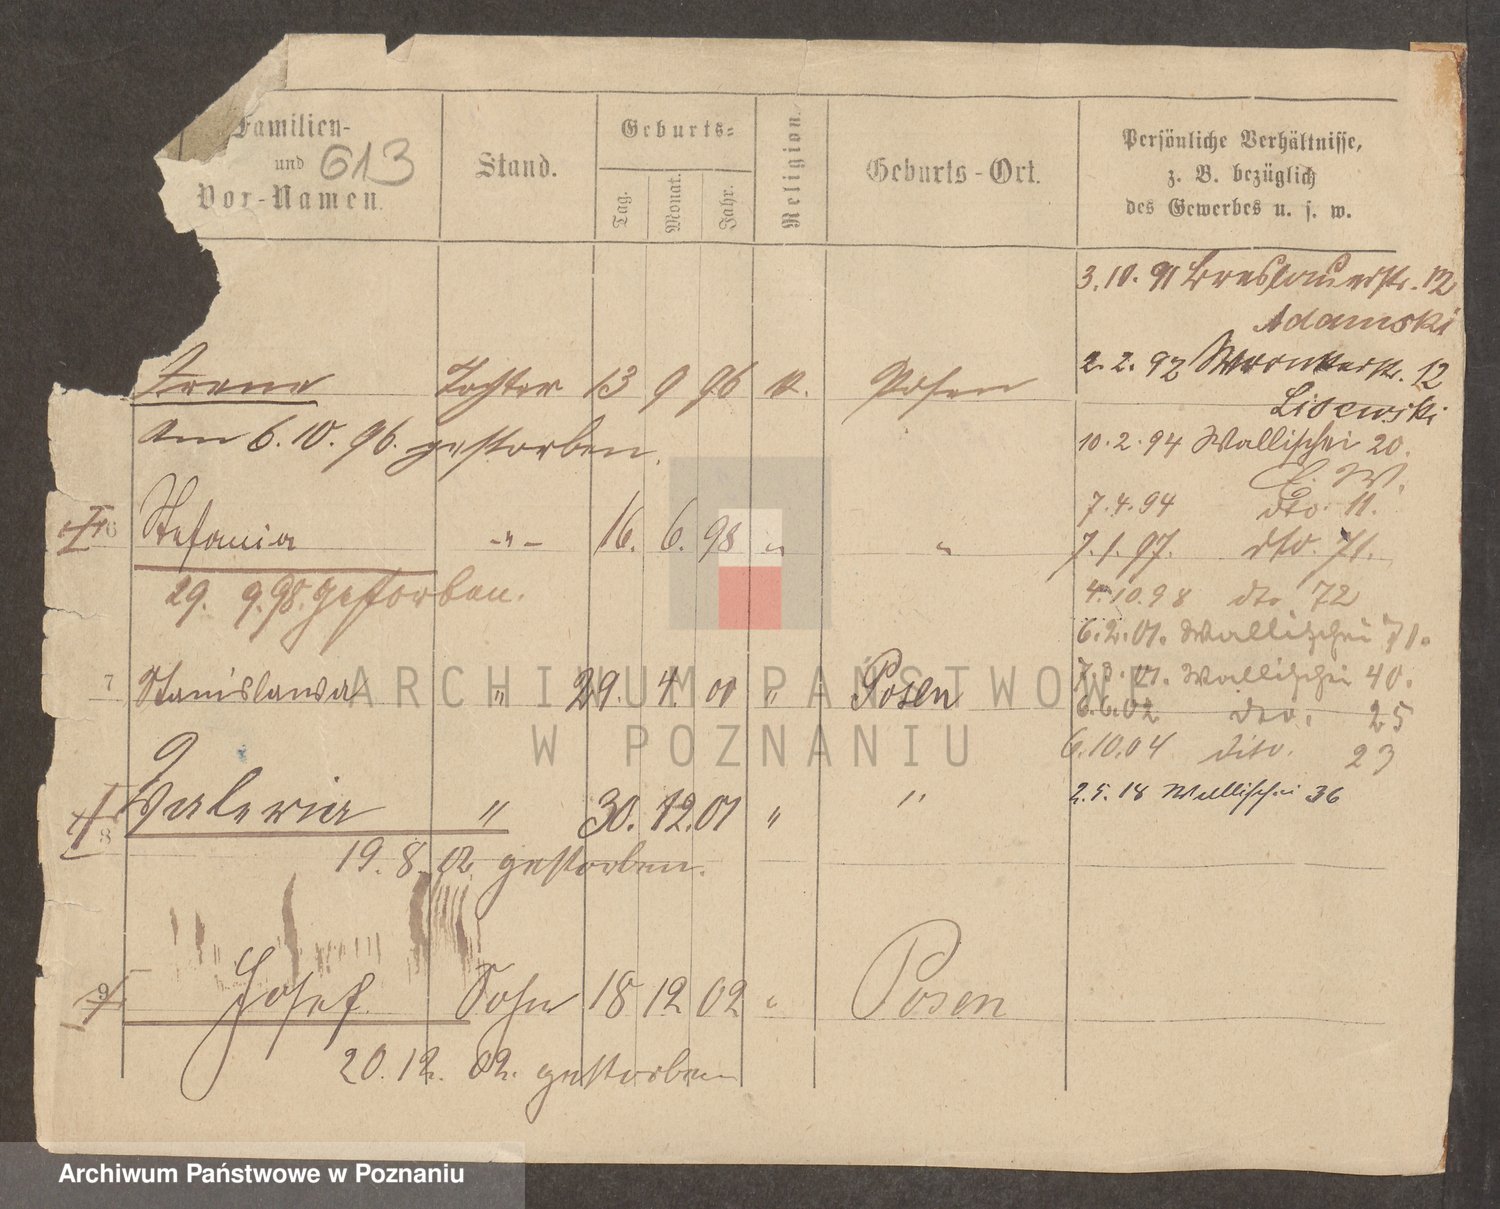 Familien-
und 613
Vor-Namen.
Stand.
Geburts-
Tag. Monat. Jahr.
Religion.
Geburts-Ort.
Persönliche Verhältnisse,
z. B. bezüglich
des Gewerbes u. s. w.
3.10.91 Breslauerstr. 12
Adamski
2.2.92 Wronkerstr. 12
Irena Tochter 13 9 96 k. Posen
Lisewski
Am 6.10.96. gestorben.
10.2.94 Wallischei 20.
7.4.94 dto. 11.
6 Stefania -"- 16. 6. 98 " "
7.1.97. dto. 71.
29. 9. 98. gestorben.
4.10.98 dto 72
6.2.01. Wallischei 71.
7 Stanislawa " 29. 4. 01 " Posen
7.3.01. Wallischei 40.
6.6.02 dto. 25
6.10.04 dito. 23
8 Valeria " 30. 12. 01 " "
2.5.18 Wallischei 36
19. 8. 02 gestorben.
9 Josef Sohn 18 12 02 " Posen
20. 12. 02. gestorben
ARCHIWUM PAŃSTWOWE
W POZNANIU
Archiwum Państwowe w Poznaniu